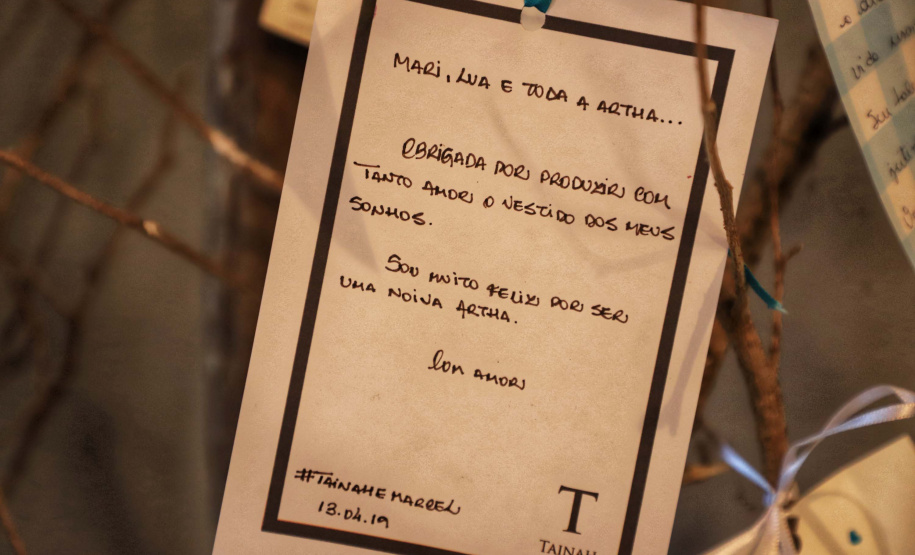 MARI, LUA E TODA A ARTHA...
OBRIGADA POR PRODUZIR COM
TANTO AMOR O VESTIDO DOS MEUS
SONHOS.
SOU MUITO FELIZ POR SER
UMA NOIVA ARTHA.
COM AMOR
#TAINAHEMARCEL
13.04.19
T
TAINAH